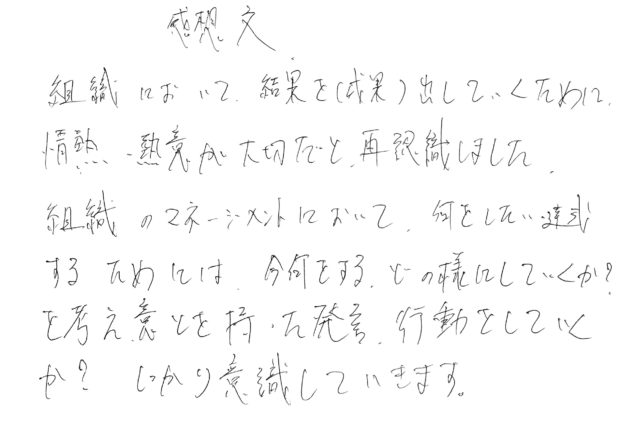 感想文
組織において、結果を(成果)出していくために、
情熱、熱意が大切だと、再認識しました。
組織のマネージメントにおいて、何をしたい達成
するためには、今何をする、どの様にしていくか?
を考え、意とを持った発言、行動をしていく
か? しっかり意識していきます。